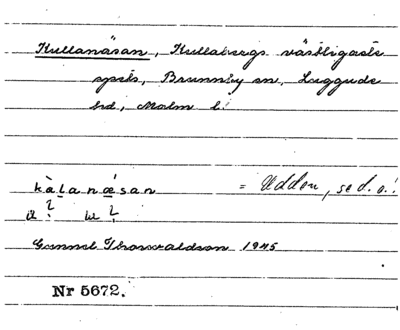 Kullanäsan, Kullabergs västligaste
spets, Brunnby sn, Luggude
hd, Malm l.
kàlanǽsan = Udden, se d. o.!
Gunnel Thorwaldson 1945
Nr 5672.